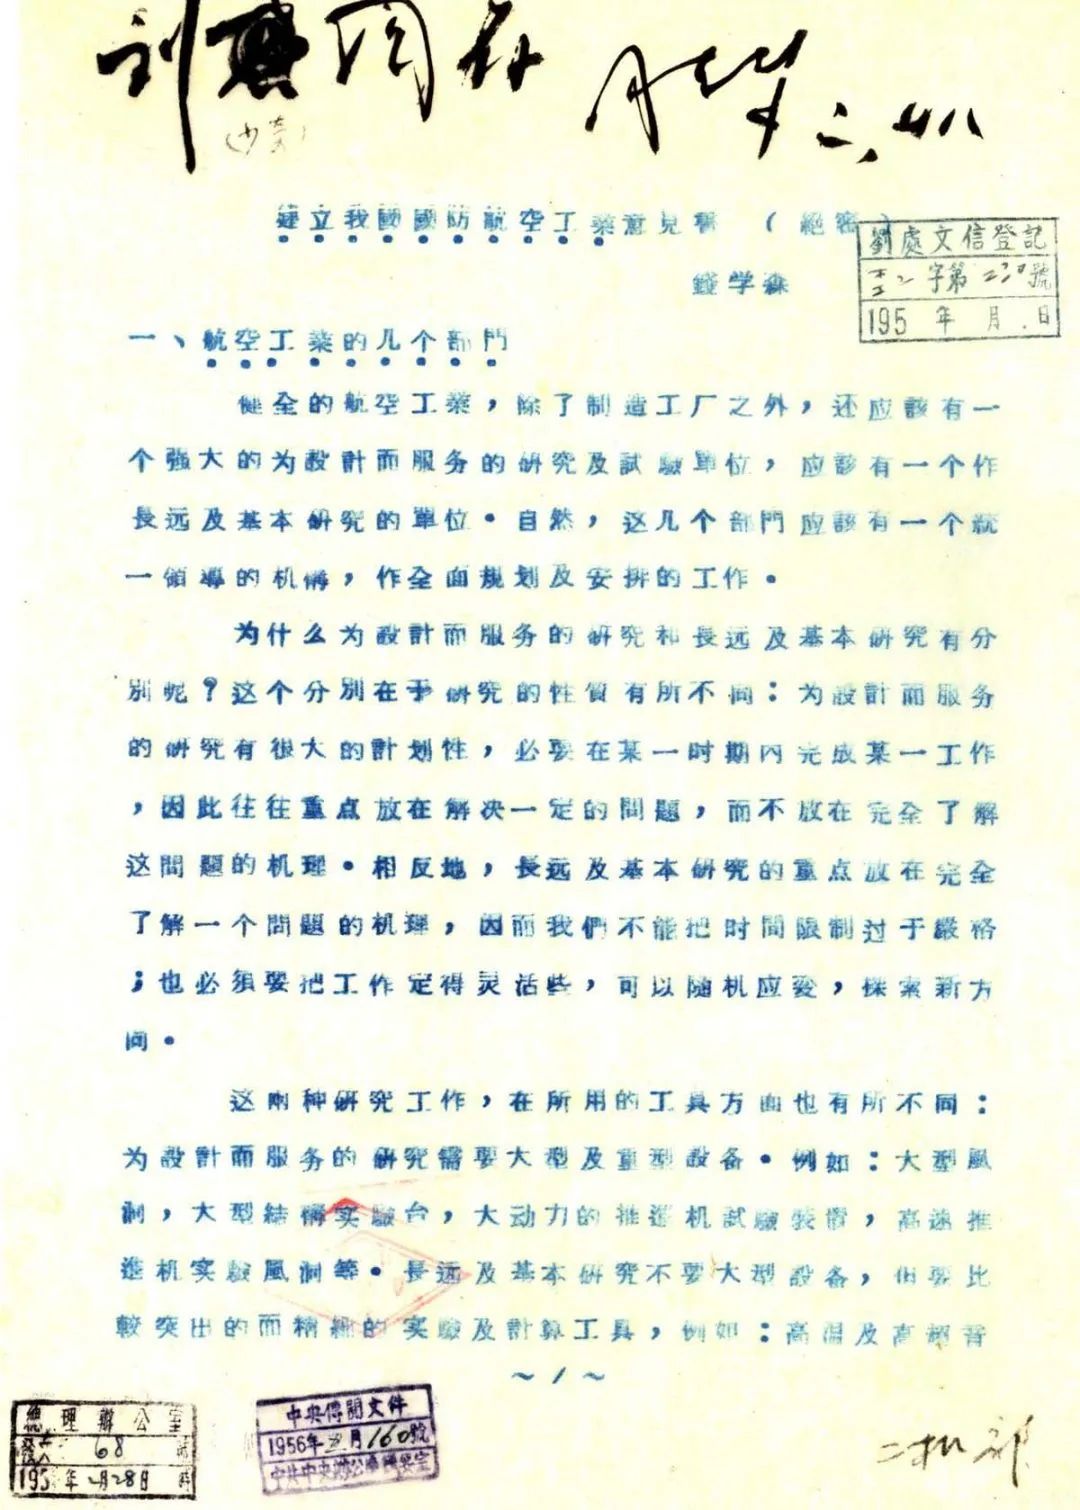 刘
同存
(少奇)
建立我國國防航空工業意見書 （絕密）
錢学森
劉處文信登記
字第 號
195 年 月 日
一、航空工業的几个部門
健全的航空工業，除了制造工厂之外，还应該有一
个強大的为設計而服务的研究及試驗單位，应該有一个作
長远及基本研究的單位。自然，这几个部門应該有一个統
一領導的机構，作全面規划及安排的工作。
为什么为設計而服务的研究和長远及基本研究有分
別呢？这个分別在于研究的性質有所不同：为設計而服务
的研究有很大的計划性，必要在某一时期內完成某一工作
，因此往往重点放在解决一定的問題，而不放在完全了解
这問題的机理。相反地，長远及基本研究的重点放在完全
了解一个問題的机理，因而我們不能把时間限制过于嚴格
；也必須要把工作定得灵活些，可以隨机应变，探索新方
向。
这兩种研究工作，在所用的工具方面也有所不同：
为設計而服务的研究需要大型及重型設备。例如：大型風
洞，大型結構实驗台，大动力的推進机試驗裝置，高速推
進机实驗風洞等。長远及基本研究不要大型設备，但要比
較突出的而精細的实驗及計算工具，例如：高溫及高超音
～1～
總理辦公室
68 號
195 年2月28日 時
中央傳閱文件
1956年2月160號
中共中央辦公廳機要室
二机部